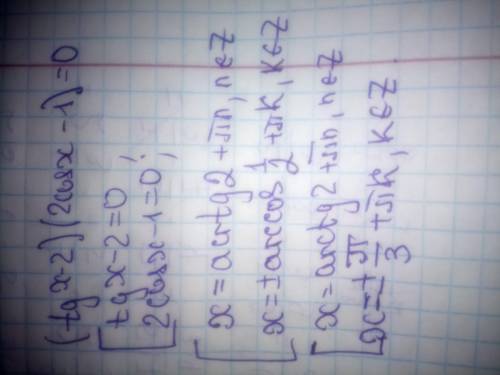 (tg x-2)(2cosx-1)=0
[tgx-2=0,
2cosx-1=0;
[x=acrtg2+πn, n∈Z
x=±arccos 1/2+πk, k∈Z
[x=arctg2+πn, n∈Z
x=±π/3+πk, k∈Z.